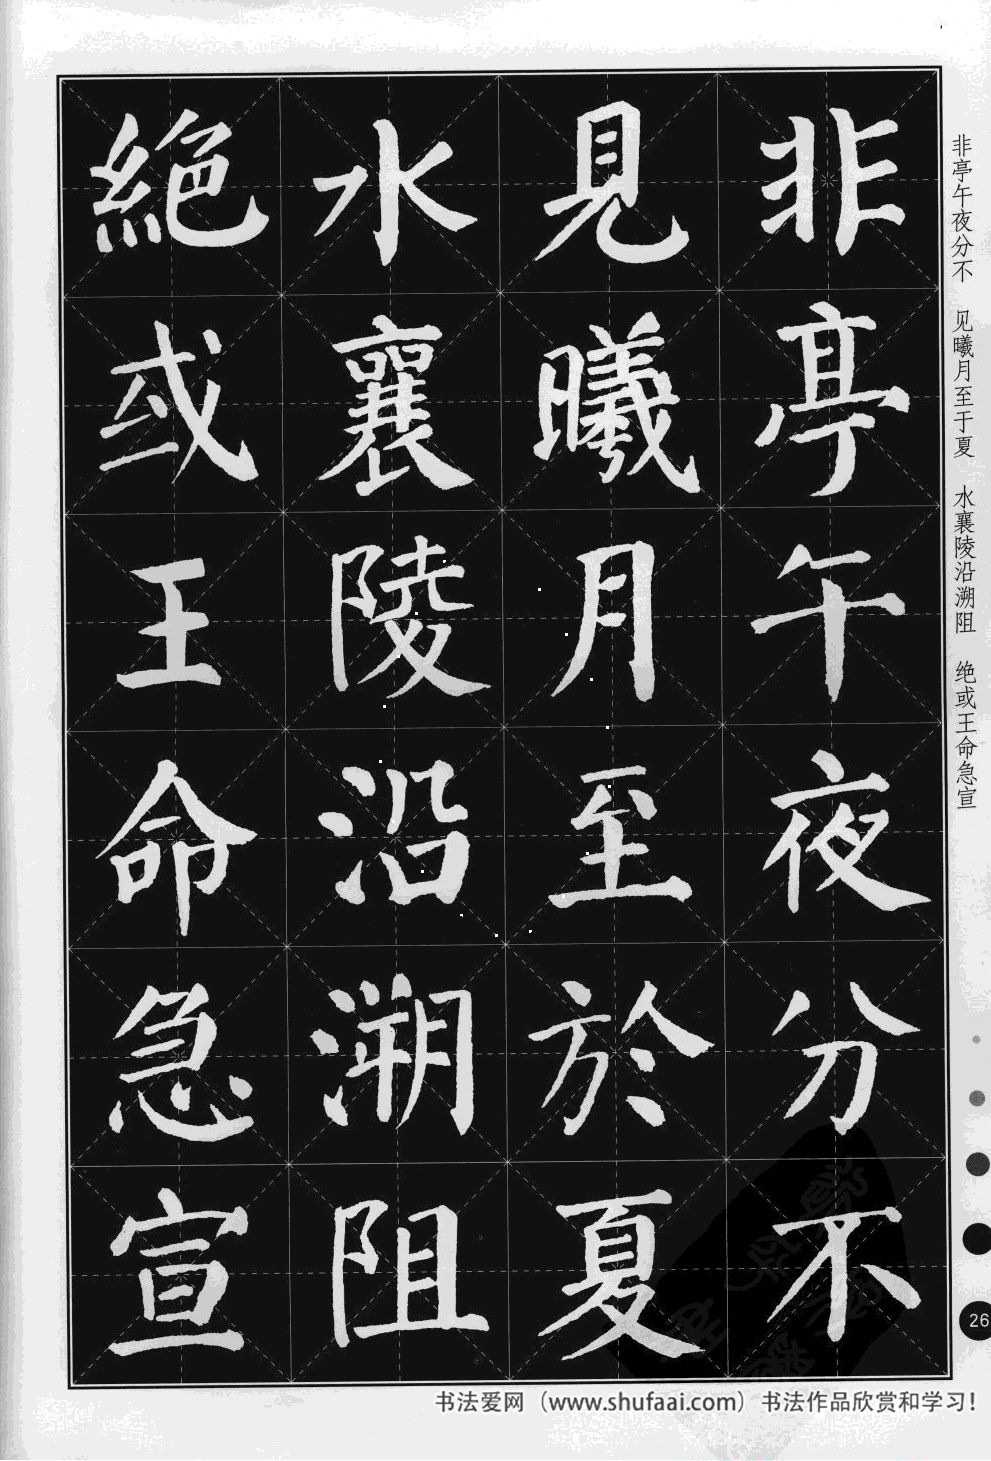 非亭午夜分不
見曦月至於夏
水襄陵沿溯阻
絕或王命急宣
非亭午夜分不 见曦月至于夏 水襄陵沿溯阻 绝或王命急宣
26
书法爱网（www.shufaai.com）书法作品欣赏和学习！